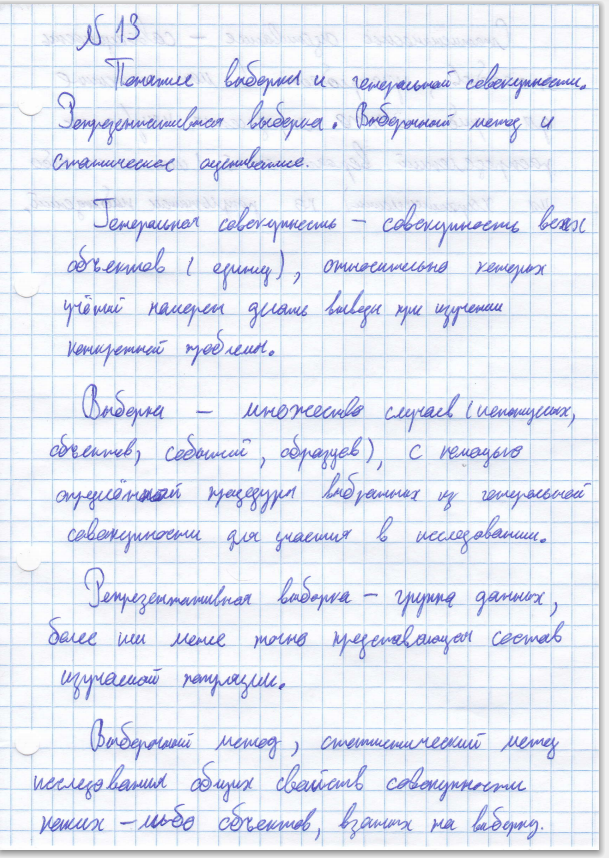 № 13
Понятие выборки и генеральной совокупности.
Репрезентативная выборка. Выборочный метод и
статическое оценивание.
Генеральная совокупность – совокупность всех
объектов (единиц), относительно которых
учёный намерен делать выводы при изучении
конкретной проблемы.
Выборка – множество случаев (испытуемых,
объектов, событий, образцов), с помощью
определённой процедуры выбранных из генеральной
совокупности для участия в исследовании.
Репрезентативная выборка – группа данных,
более или менее точно представляющая состав
изучаемой популяции.
Выборочный метод, статистический метод
исследования общих свойств совокупности
каких-либо объектов, взятых на выборку.